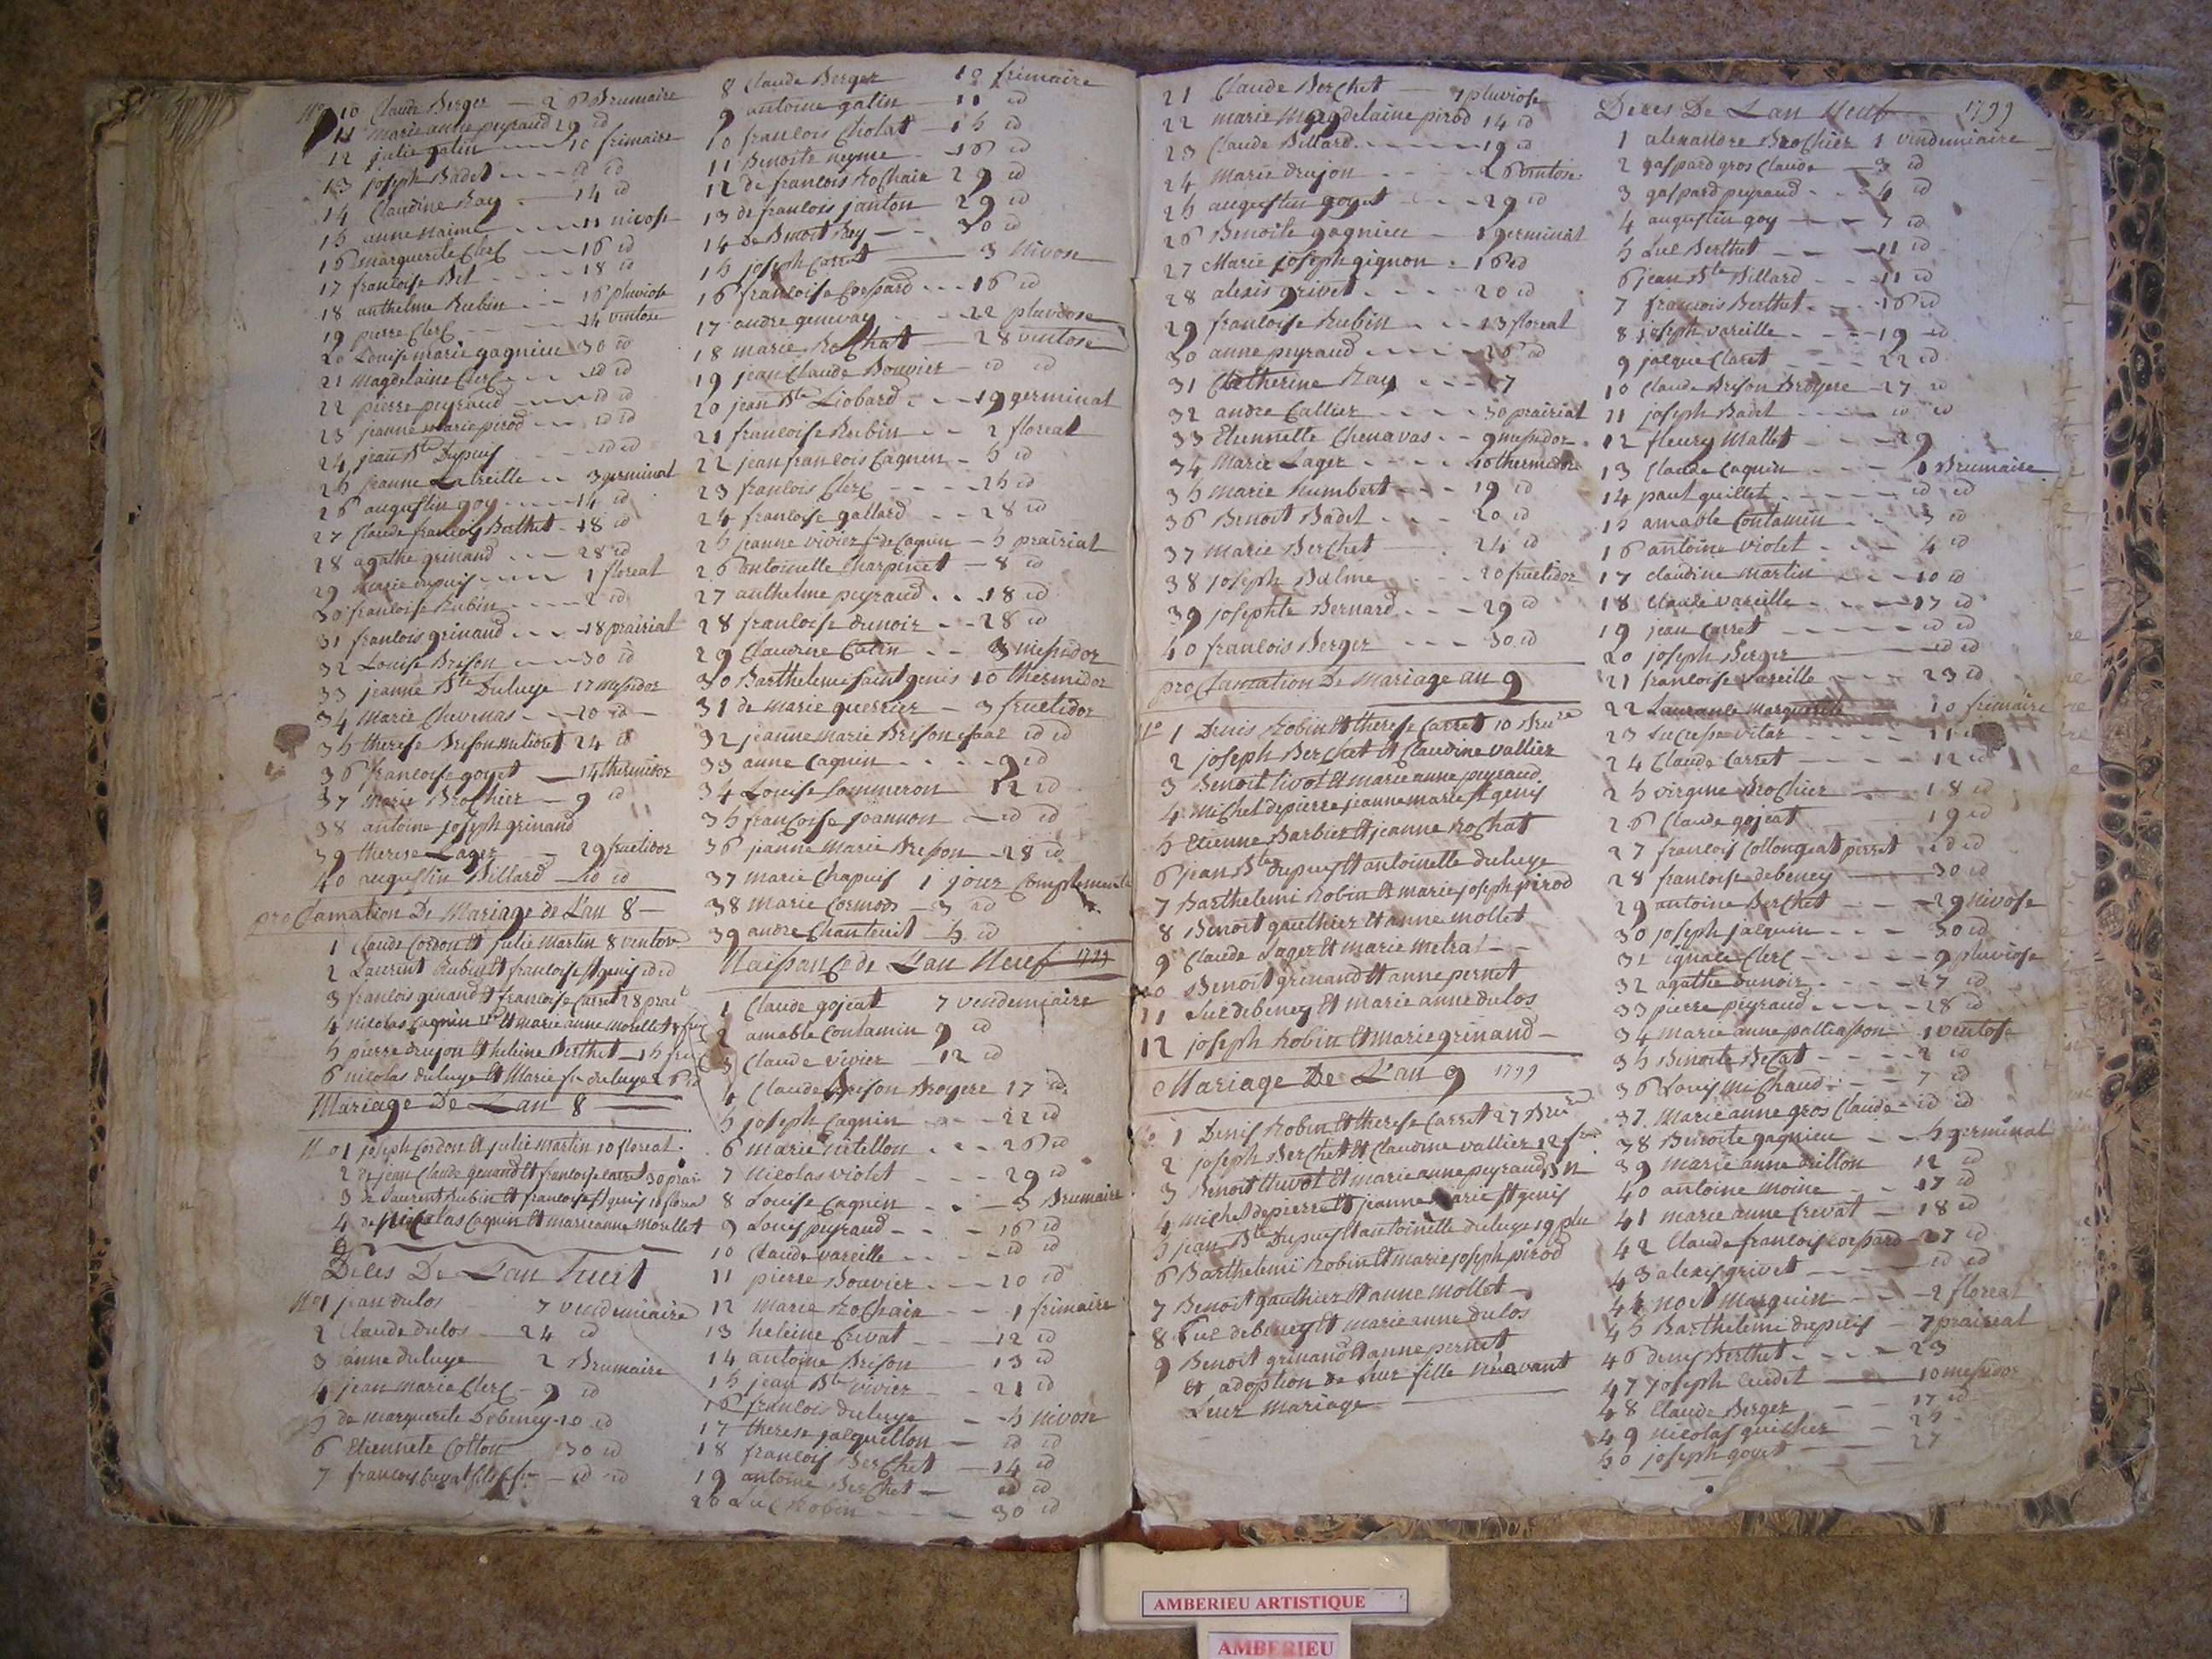 No 10 Claude Berger — 26 Brumaire
11 marie anne peyraud 29 id
12 julie galin 10 frimaire
13 joseph Badet id id
14 Claudine Ray 14 id
15 anne 11 nivose
16 marguerite Clerc 16 id
17 francoise 18 id
18 anthelme Rubin 16 pluviose
19 pierre Clerc 14 ventose
20 Louise marie gagnieu 30 id
21 Magdelaine Clerc id id
22 pierre peyraud id id
23 jeanne marie pirod id id
24 jean Bte Dupuis id id
25 jeanne Labreille 3 germinal
26 augustin goy 14 id
27 Claude francois Berthet 18 id
28 agathe grinand 28 id
29 marie dupuis 1 floreal
30 francoise Rubin 2 id
31 francois grinand 18 prairial
32 Louise Brison 30 id
33 jeanne Bte Duluye 17 messidor
34 Marie Chevenas 20 id
35 therese Brison 24 id
36 francoise goyet 14 thermidor
37 Marie Brochier 9 id
38 antoine joseph grinand
39 therese Lager 29 fructidor
40 augustin Billard id id
proclamation De Mariage de L'an 8
1 Claude Cordon et julie Martin 8 ventose
2 Laurent Rubin et francoise st genis id id
3 francois genand et francoise Carret 28 prael
4 nicolas Cagnin et marie anne morellet
5 pierre drujon et heleine Berthet 15
6 nicolas duluye et Marie duluye 26 id
Mariage De Lan 8
No 1 joseph Cordon et julie martin 10 floreal
2 de jean Claude genand et francoise Carret 30 prai
3 de Laurent Rubin et francoise st genis 10 floreal
4 de Nicolas Cagnin et marie anne Morellet
Deces De Lan huit
No 1 jean dulos 7 vendemiaire
2 Claude dulos 24 id
3 anne duluye 2 Brumaire
4 jean marie Clerc 9 id
5 de marguerite Debeney 10 id
6 Etiennete Colton 30 id
7 francois Crevat fils id id
8 Claude Berger 10 frimaire
9 antoine galin 11 id
10 francois Cholat 15 id
11 Benoite neyme 16 id
12 de francois Rochaix 29 id
13 de francois janton 29 id
14 de Benoit Rey 30 id
15 joseph Carret 3 Nivose
16 francoise Corpard 16 id
17 andre genevay 22 pluviose
18 marie Rochat 28 ventose
19 jean Claude Bouvier id id
20 jean Bte Liobard 19 germinal
21 francoise Rubin 2 floreal
22 jean francois Cagnin 5 id
23 francois Clerc 25 id
24 francoise gallard 28 id
25 jeanne vivier fe de Cagnin 5 prairial
26 antoinette Charpinet 8 id
27 anthelme peyraud 18 id
28 francoise dunoir 28 id
29 Claudine Catin 3 messidor
30 Barthelemi saint genis 10 thermidor
31 de marie guerrier 3 fructidor
32 jeanne Marie Brison id id
33 anne Cagnin 9 id
34 Louise Sommeron 12 id
35 francoise joannon id id
36 jeanne Marie Brisson 28 id
37 marie Chapuis 1 jour Complementr
38 marie Cormod 3 id
39 andre Chanteuil 5 id
Naissance de Lan Neuf 1799
1 Claude gojeat 7 vendemiaire
2 amable Contamin 9 id
3 Claude vivier 12 id
4 Claude Brison Broyere 17 id
5 joseph Cagnin 22 id
6 marie tirtellon 26 id
7 Nicolas violet 29 id
8 Louise Cagnin 3 Brumaire
9 Louis peyraud 16 id
10 Claude vareille id id
11 pierre Bouvier 20 id
12 Marie Rochaix 1 frimaire
13 heleine Crevat 12 id
14 antoine Brison 13 id
15 jean Bte vivier 21 id
16 francois duluye 5 nivose
17 therese jacquillon id id
18 francois Berchet 14 id
19 antoine Berchet id id
20 Luc Robin 30 id
21 Claude Berchet 7 pluviose
22 marie Magdelaine pirod 14 id
23 Claude Billard 19 id
24 Marie drujon 26 ventose
25 augustin goyet 29 id
26 Benoite gagnieu 1 germinal
27 Marie joseph gignon 16 id
28 alexis grivet 20 id
29 francoise Rubin 13 floreal
30 anne peyraud 26 id
31 Catherine Ray 27
32 andre Callier 30 prairial
33 Etiennette Chenavas 9 messidor
34 Marie Lager 10 thermidor
35 Marie humbert 19 id
36 Benoit Badet 20 id
37 Marie Berchet 24 id
38 joseph Balme 20 fructidor
39 josephte Bernard 29 id
40 francois Berger 30 id
proclamation De Mariage an 9
No 1 Denis Robin et therese Carret 10 Brure
2 joseph Berchet et Claudine vallier
3 Benoit tivot et marie anne peyraud
4 Michel depierre jeanne marie st genis
5 Etienne Barbier et jeanne Rochat
6 jean Bte dupuis et antoinette duluye
7 Barthelemi Robin et marie joseph pirod
8 Benoit gaulthier et anne mollet
9 Claude Lager et marie metral
10 Benoit grinand et anne pernet
11 Luc debeney et marie anne dulos
12 joseph Robin et marie grinand
Mariage De L'an 9 1799
No 1 Denis Robin et therese Carret 27 Brure
2 joseph Berchet et Claudine vallier 12 fre
3 Benoit tivot et marie anne peyraud
4 michel depierre et jeanne marie st genis
5 jean Bte Dupuis et antoinette duluye 19 plu
6 Barthelemi Robin et marie joseph pirod
7 Benoit gaulthier et anne mollet
8 Luc debeney et marie anne dulos
9 Benoit grinand et anne pernet
et adoption de leur fille nee avant
Leur mariage
Deces De L'an Neuf 1799
1 alexandre Brochier 1 vendemiaire
2 gaspard gros Claude 3 id
3 gaspard peyraud 4 id
4 augustin goy 7 id
5 Luc Berthet 11 id
6 jean Bte Billard 11 id
7 francois Berthet 16 id
8 joseph vareille 19 id
9 jacque Claret 22 id
10 Claude Brison Broyere 27 id
11 joseph Badet id id
12 fleury Mallet 29
13 Claude Cagnin 1 Brumaire
14 paul quillet id id
15 amable Contamin 3 id
16 antoine violet 4 id
17 claudine martin 10 id
18 Claude vareille 17 id
19 jean Carret id id
20 joseph Berger id id
21 francoise vareille 23 id
22 Laurance Marguerite 10 frimaire
23 vitar 11 id
24 Claude Carret 12 id
25 virgine Brochier 18 id
26 Claude gojeat 19 id
27 francois Collongeat pierret id id
28 francoise debeney 30 id
29 antoine Berchet 29 Nivose
30 joseph jacquin 30 id
31 ignace Clerc 9 pluviose
32 agathe dunoir 27 id
33 pierre peyraud 28 id
34 marie anne palliasson 1 ventose
35 Benoite Becat 2 id
36 Louis Michaud 7 id
37 Marie anne gros Claude id id
38 Benoite gagnieu 5 germinal
39 marie anne Billon 12 id
40 antoine moine 17 id
41 marie anne Crevat 18 id
42 Claude francois Corpard 27 id
43 alexis grivet id id
44 noel Marquin 2 floreal
45 Barthelemi dupuis 7 prairial
46 denis Berthet 23
47 joseph Cudet 10 messidor
48 Claude Berger 17 id
49 nicolas guicher 25
50 joseph goyet 27
AMBERIEU ARTISTIQUE
AMBERIEU